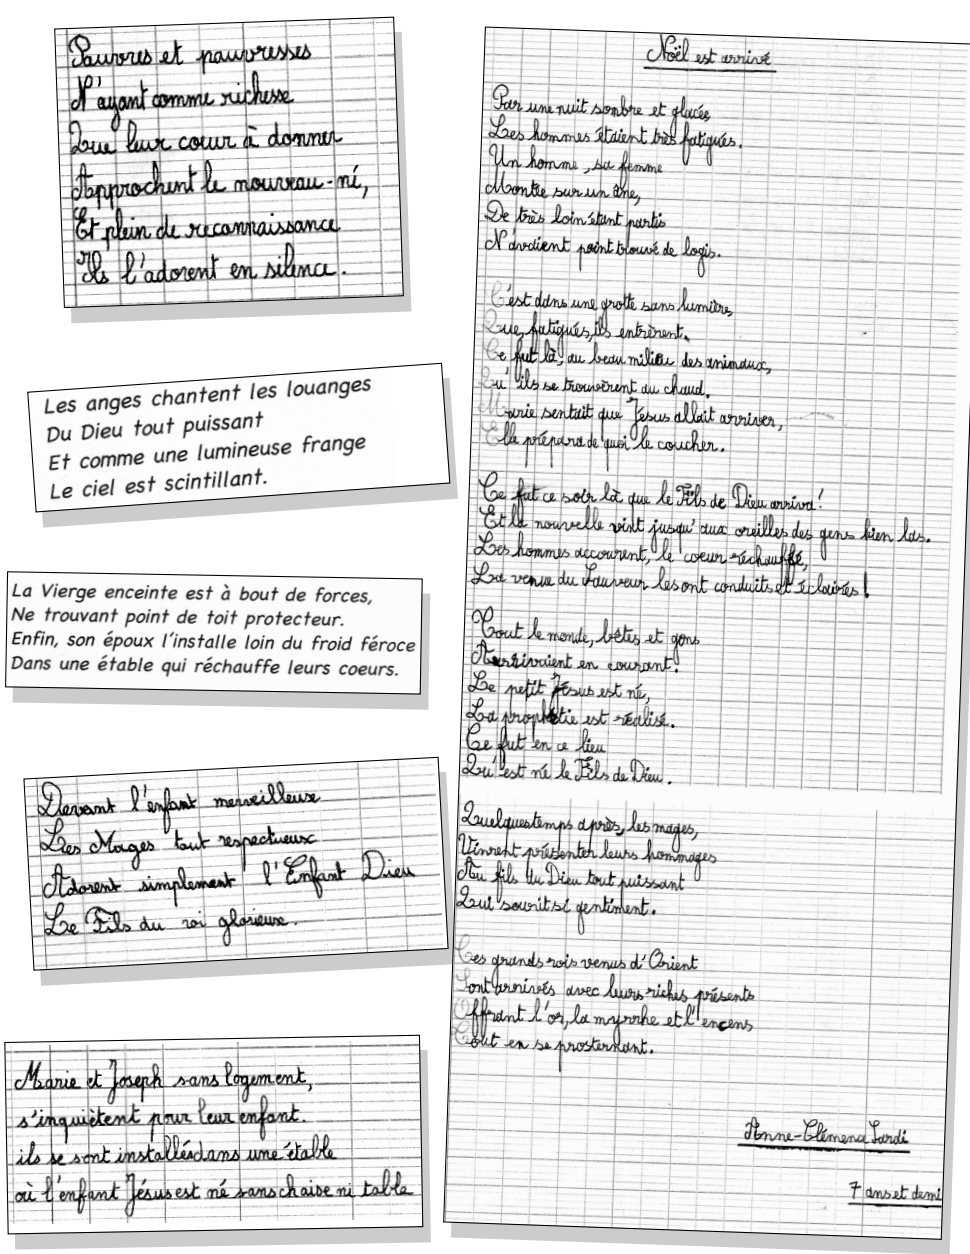 Pauvres et pauvresses
N'ayant comme richesse
Que leur cœur à donner
Approchent le nouveau-né,
Et plein de reconnaissance
Ils l'adorent en silence.
Les anges chantent les louanges
Du Dieu tout puissant
Et comme une lumineuse frange
Le ciel est scintillant.
La Vierge enceinte est à bout de forces,
Ne trouvant point de toit protecteur.
Enfin, son époux l'installe loin du froid féroce
Dans une étable qui réchauffe leurs coeurs.
Devant l'enfant merveilleux
Les Mages tout respectueux
Adorent simplement l'Enfant Dieu
Le Fils du roi glorieux.
Marie et Joseph sans logement,
s'inquiètent pour leur enfant.
ils se sont installés dans une étable
où l'enfant Jésus est né sans chaise ni table
Noël est arrivé
Par une nuit sombre et glacée,
Les hommes étaient très fatigués.
Un homme, sa femme
Montée sur un âne,
De très loin étant partis
N'avaient point trouvé de logis.
C'est dans une grotte sans lumière,
Que, fatigués, ils entrèrent.
Ce fut là, au beau milieu des animaux,
Qu'ils se trouvèrent au chaud.
Marie sentait que Jésus allait arriver,
Elle prépara de quoi le coucher.
Ce fut ce soir là que le Fils de Dieu arriva!
Et la nouvelle vint jusqu'aux oreilles des gens bien las.
Les hommes accourent, le coeur réchauffé,
La venue du Sauveur les ont conduits et éclairés!
Tout le monde, bêtes et gens
Arrivaient en courant.
Le petit Jésus est né,
La prophétie est réalisé.
Ce fut en ce lieu
Qu'est né le Fils de Dieu.
Quelques temps après, les mages,
Vinrent présenter leurs hommages
Au fils du Dieu tout puissant
Qui sourit si gentiment.
Ces grands rois venus d'Orient
Sont arrivés avec leurs riches présents
Offrant l'or, la myrrhe et l'encens
Tout en se prosternant.
Anne-Clémence Sardi
7 ans et demi